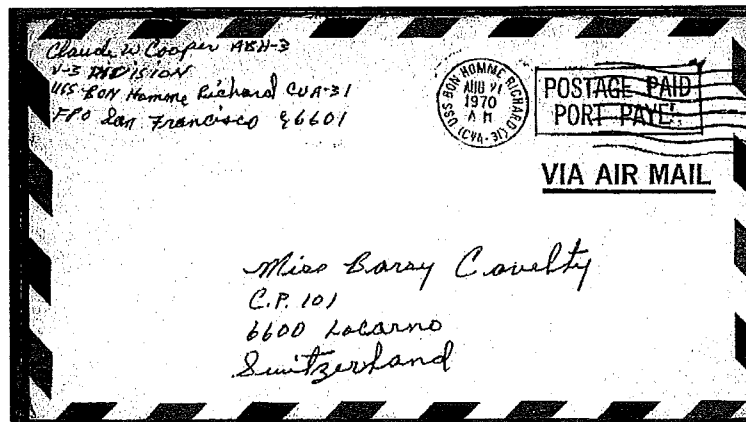 Claude W Cooper ABH-3
V-3 DIVISION
USS Bon Homme Richard CVA-31
FPO San Francisco 96601
USS BON HOMME RICHARD
AUG 21
1970
AM
(CVA-31)
POSTAGE PAID
PORT PAYE'
VIA AIR MAIL
Miss Covelty
C.P. 101
6600 Locarno
Switzerland